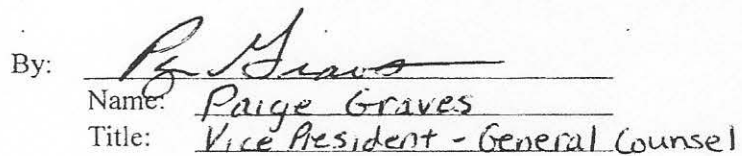 By: Pg Graves
Name: Paige Graves
Title: Vice President - General Counsel